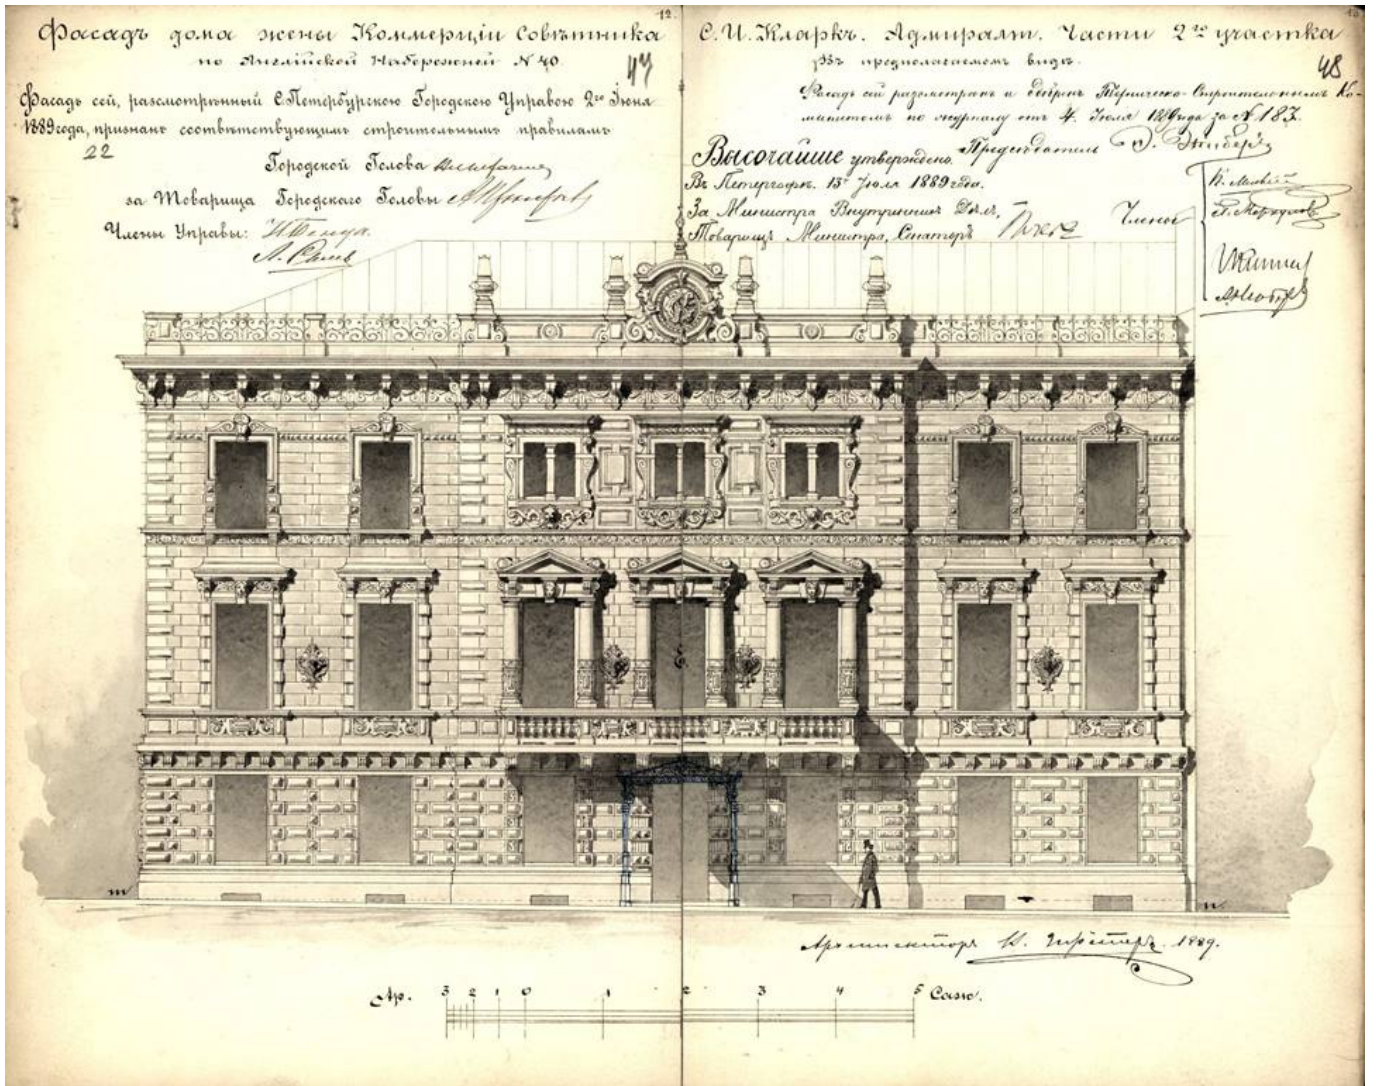 12.
Фасадъ дома жены Коммерціи Совѣтника
по Англійской Набережной № 40.
47
Фасадъ сей, разсмотрѣнный С.Петербургскою Городскою Управою 2го Іюня
1889 года, признанъ соотвѣтствующимъ строительнымъ правиламъ
22
Городской Голова
за Товарища Городскаго Головы
Члены Управы:
С. И. Кларкъ. Адмиралт. Части 2го участка
въ предполагаемомъ видѣ.
48
Фасадъ сей разсмотренъ и одобренъ Техническо-Строительнымъ Ко-
митетомъ по журналу отъ 4. Іюля 1889 года за № 183.
Предсѣдатель
Высочайше утвержденъ.
Въ Петергофѣ. 13го Іюля 1889 года.
За Министра Внутреннихъ Дѣлъ,
Товарищъ Министра, Сенаторъ Плеве
Члены
m
n
Архитекторъ 1889.
Ар. 3 2 1 0 1 2 3 4 5 Саж.